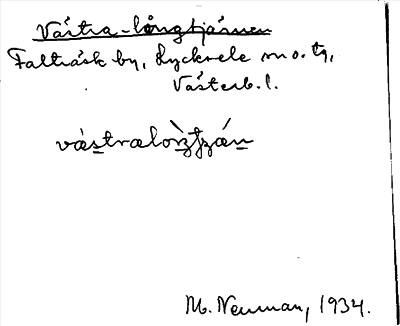 Västra-långtjärnen
Falträsk by, Lycksele sn o. tg,
Västerb. l.
västralòŋtjæ̀n
M. Neuman, 1934.